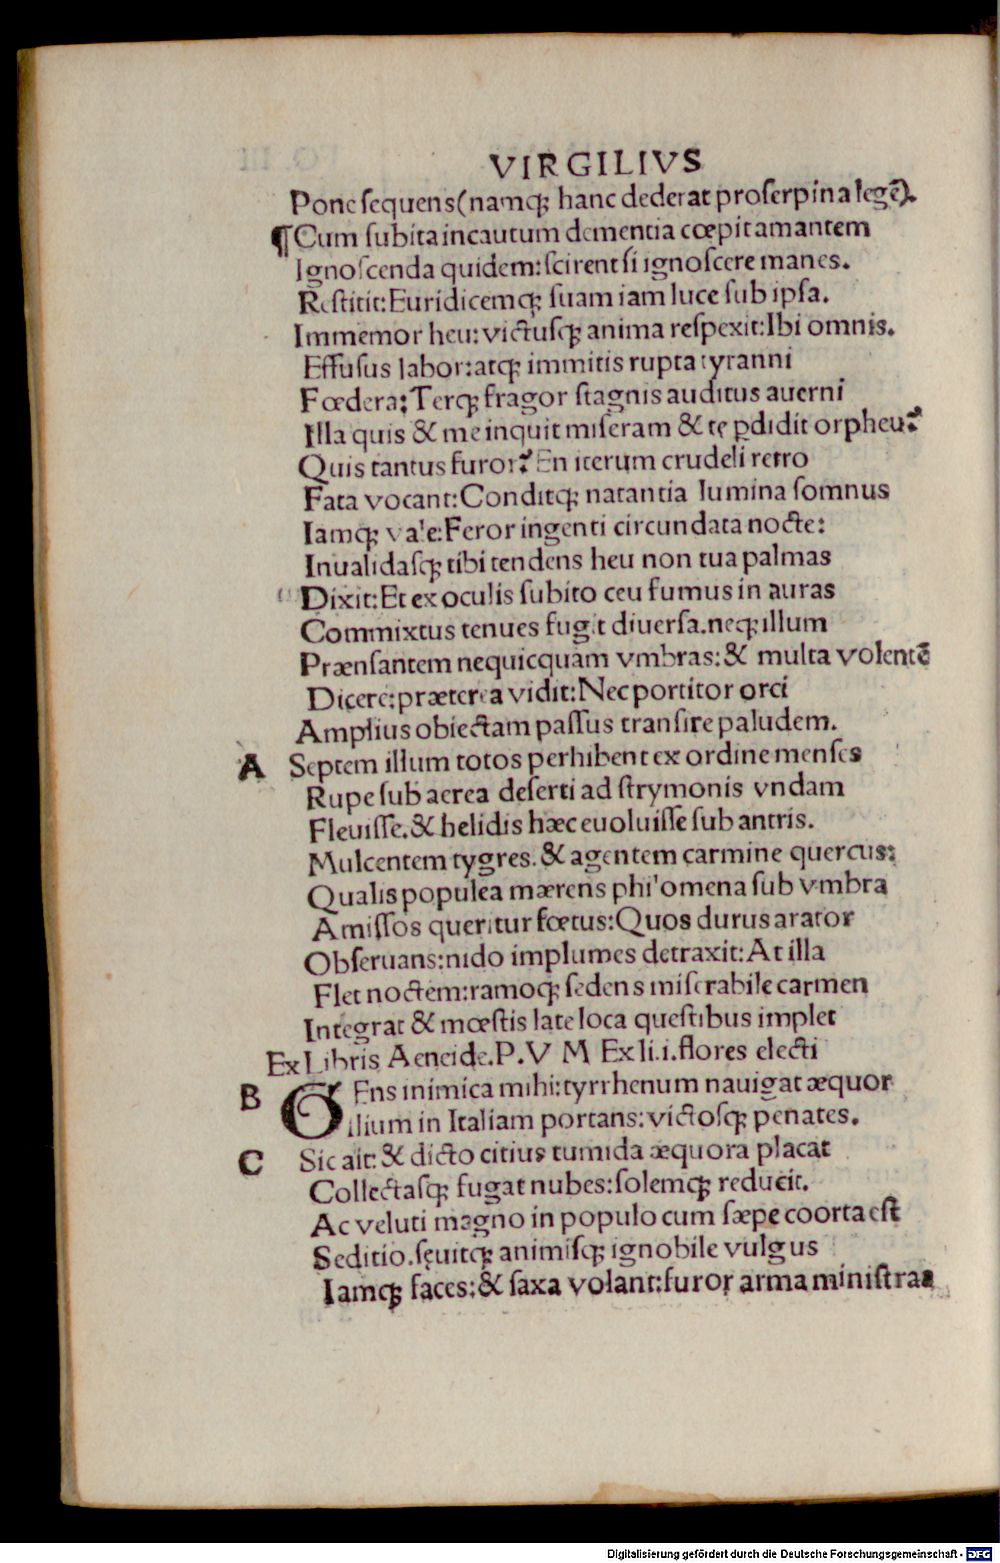 VIRGILIVS
Pone ſequens (namqꝫ hanc dederat proſerpina legē).
¶ Cum ſubita incautum dementia cœpit amantem
Ignoſcenda quidem: ſcirent ſi ignoſcere manes.
Reſtitit: Euridicemqꝫ ſuam iam luce ſub ipſa.
Immemor heu: victuſqꝫ anima reſpexit: Ibi omnis.
Effuſus labor: atqꝫ immitis rupta tyranni
Fœdera: Terqꝫ fragor ſtagnis auditus auerni
Illa quis & me inquit miſeram & te ꝑdidit orpheu?
Quis tantus furor? En iterum crudeli retro
Fata vocant: Conditqꝫ natantia lumina ſomnus
Iamqꝫ vale: Feror ingenti circundata nocte:
Inualidaſqꝫ tibi tendens heu non tua palmas
Dixit: Et ex oculis ſubito ceu fumus in auras
Commixtus tenues fugit diuerſa. neqꝫ illum
Prænſantem nequicquam vmbras: & multa volentē
Dicere: præterea vidit: Nec portitor orci
Amplius obiectam paſſus tranſire paludem.
A Septem illum totos perhibent ex ordine menſes
Rupe ſub aerea deſerti ad ſtrymonis vndam
Fleuiſſe. & helidis hæc euoluiſſe ſub antris.
Mulcentem tygres. & agentem carmine quercus:
Qualis populea mærens philomena ſub vmbra
Amiſſos queritur fœtus: Quos durus arator
Obſeruans: nido implumes detraxit: At illa
Flet noctem: ramoqꝫ ſedens miſerabile carmen
Integrat & mœſtis late loca queſtibus implet
Ex Libris Aeneide. P. V M Ex li. i. flores electi
B GEns inimica mihi: tyrrhenum nauigat æquor
ilium in Italiam portans: victoſqꝫ penates.
C Sic ait: & dicto citius tumida æquora placat
Collectaſqꝫ fugat nubes: ſolemqꝫ reducit.
Ac veluti magno in populo cum ſæpe coorta eſt
Seditio. ſęuitqꝫ animiſqꝫ ignobile vulgus
Iamqꝫ faces: & ſaxa volant: furor arma miniſtrat
Digitalisierung gefördert durch die Deutsche Forschungsgemeinschaft - DFG